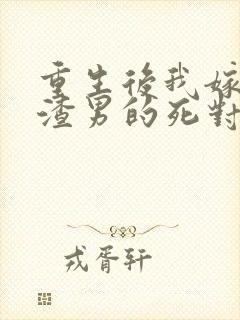 重生後我嫁
渣男的死對
戎胥轩